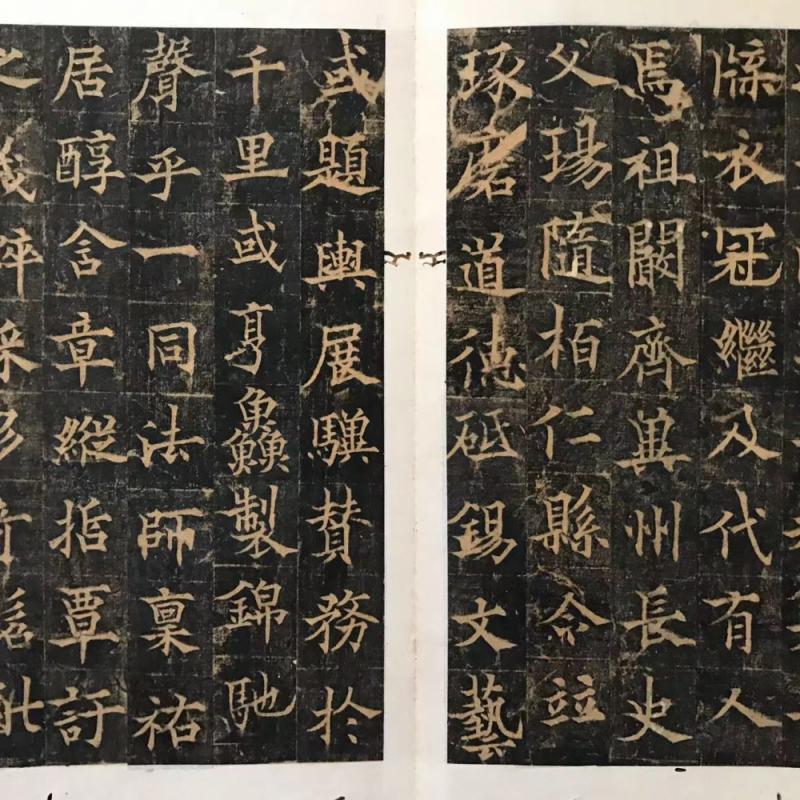 牒衣冠繼及代有人
焉祖闞齊冀州長史
父瑒隋柏仁縣令並
琢磨道德砥錫文藝
或題輿展驥贊務於
千里或亨鱻製錦馳
聲乎一同法師稟祐
居醇含章縱哲覃訏
之歲粹采多奇髫